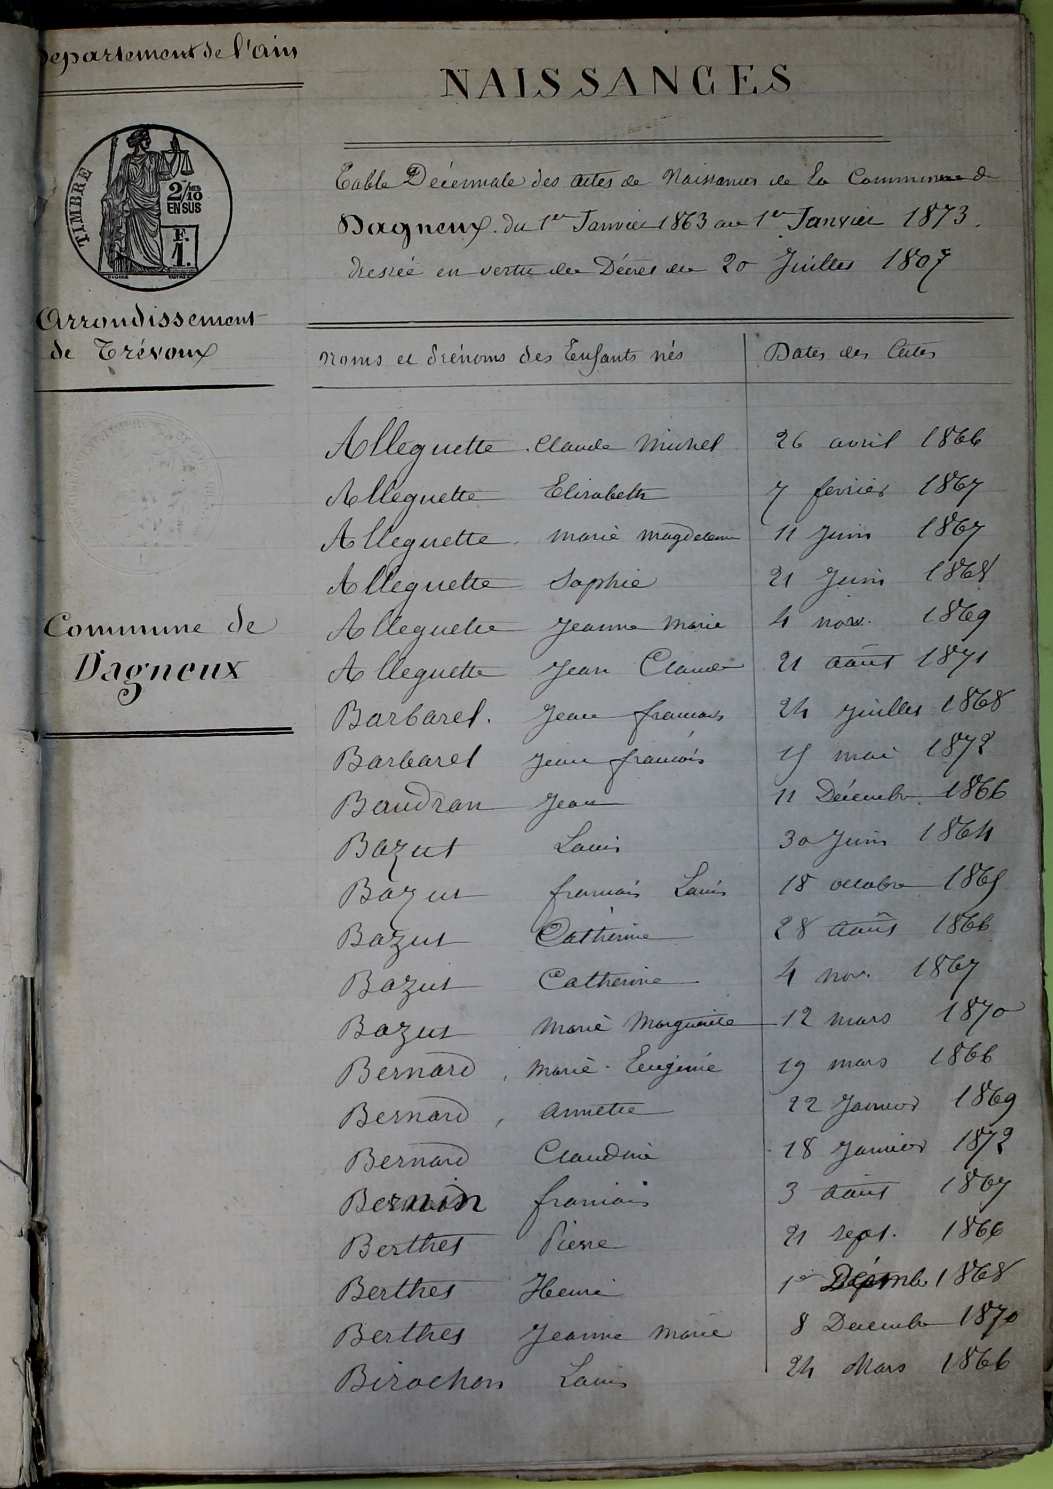 Département de l'ain
TIMBRE
2/10
EN SUS
F.
1.
Arrondissement
de Trévoux
Commune de
Dagneux
NAISSANCES
Table Décennale des actes de Naissances de La Commune de
Dagneux. du 1er Janvier 1863 au 1er Janvier 1873.
dressée en vertu du Décret du 20 Juillet 1807
Noms et Prénoms des Enfants nés Dates des Actes
Alleguette Claude Michel 26 avril 1866
Alleguette Elisabeth 7 fevrier 1867
Alleguette marie magdeleine 11 Juin 1867
Alleguette Sophie 21 Juin 1868
Alleguette Jeanne Marie 4 nov. 1869
Alleguette Jean Claude 21 août 1871
Barbaret. Jean francois 24 Juillet 1868
Barbaret Jean francois 15 mai 1872
Baudran Jean 11 Décembre 1866
Bazut Louis 30 Juin 1864
Bazut francois Louis 18 octobre 1865
Bazut Catherine 28 Août 1866
Bazut Catherine 4 nov. 1867
Bazut Marie Marguerite 12 mars 1870
Bernard, Marie Eugénie 19 mars 1866
Bernard, annette 22 Janvier 1869
Bernard Claudine 18 Janvier 1872
Bernin francois 3 Août 1867
Berthet Pierre 21 sept. 1866
Berthet Henri 1er 1868
Berthet Jeanne Marie 8 Decembre 1870
Birochon Louis 24 Mars 1866